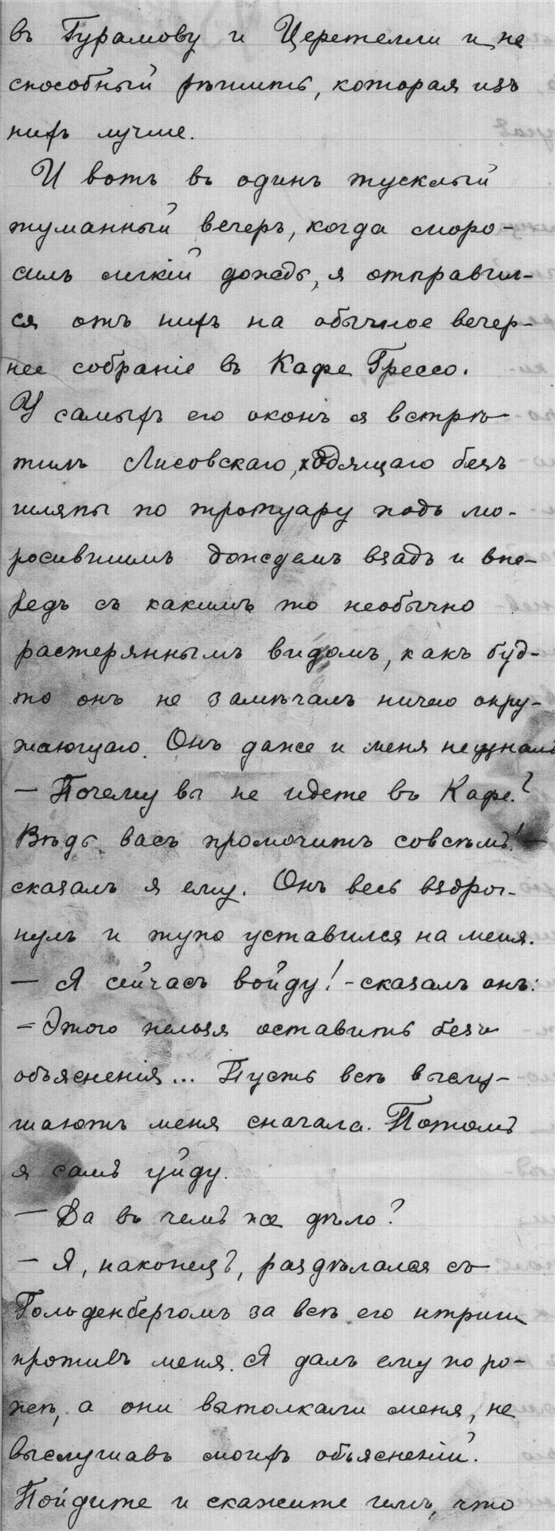 въ Гурамову и Церетелли и не
способный рѣшить, которая изъ
нихъ лучше.
И вотъ въ одинъ тусклый
туманный вечеръ, когда моро-
силъ легкій дождь, я отправил-
ся отъ нихъ на обычное вечер-
нее собраніе въ Кафе Грессо.
У самыхъ его оконъ я встрѣ-
тилъ Лисовскаго, ходящаго безъ
шляпы по тротуару подъ мо-
росившимъ дождемъ взадъ и впе-
редъ съ какимъ то необычно
растеряннымъ видомъ, какъ буд-
то онъ не замѣчалъ ничего окру-
жающаго. Онъ даже и меня не узналъ
— Почему вы не идете въ Кафе?
Вѣдь васъ промочитъ совсѣмъ! —
сказалъ я ему. Онъ весь вздрог-
нулъ и тупо уставился на меня.
— Я сейчасъ войду! - сказалъ онъ:
— Этого нельзя оставить безъ
объясненія... Пусть всѣ выслу-
шаютъ меня сначала. Потомъ
я самъ уйду.
— Да въ чемъ же дѣло?
— Я, наконецъ, раздѣлался съ
Гольденбергомъ за всѣ его интриги
противъ меня. Я далъ ему по ро-
жѣ, а они вытолкали меня, не
выслушавъ моихъ объясненій.
Пойдите и скажите имъ, что